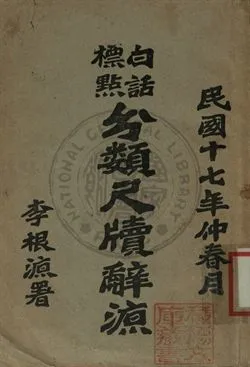 民國十七年仲春月
白話
標點
分類尺牘辭源
李根源署
NATIONAL CENTRAL LIBRARY